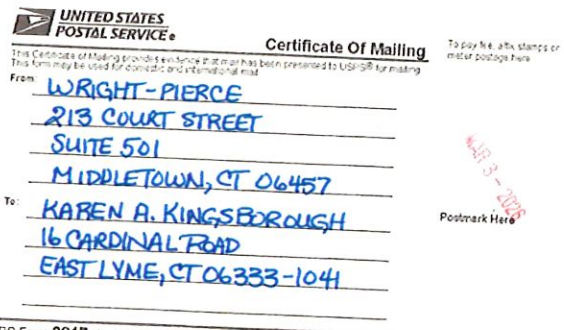 UNITED STATES
POSTAL SERVICE®
Certificate Of Mailing
To pay fee, affix stamps or
meter postage here
This Certificate of Mailing provides evidence that mail has been presented to USPS® for mailing
This form may be used for domestic and international mail
From:
WRIGHT-PIERCE
213 COURT STREET
SUITE 501
MIDDLETOWN, CT 06457
MAR 3 - 2026
Postmark Here
To:
KAREN A. KINGSBOROUGH
16 CARDINAL ROAD
EAST LYME, CT 06333-1041